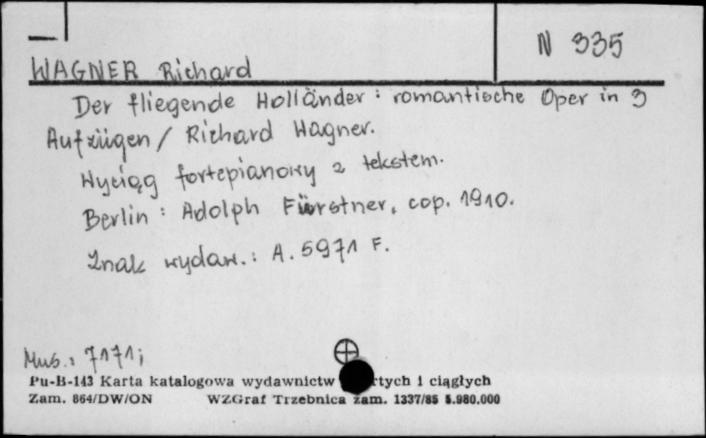 N 335
WAGNER Richard
Der fliegende Holländer : romantische Oper in 3
Aufzügen / Richard Wagner.
Wyciąg fortepianowy z tekstem.
Berlin : Adolph Fürstner, cop. 1910.
Znak wydaw.: A. 5971 F.
Mus.: 7171;
Pu-B-143 Karta katalogowa wydawnictw rtych i ciągłych
Zam. 864/DW/ON WZGraf Trzebnica zam. 1337/85 5.980.000